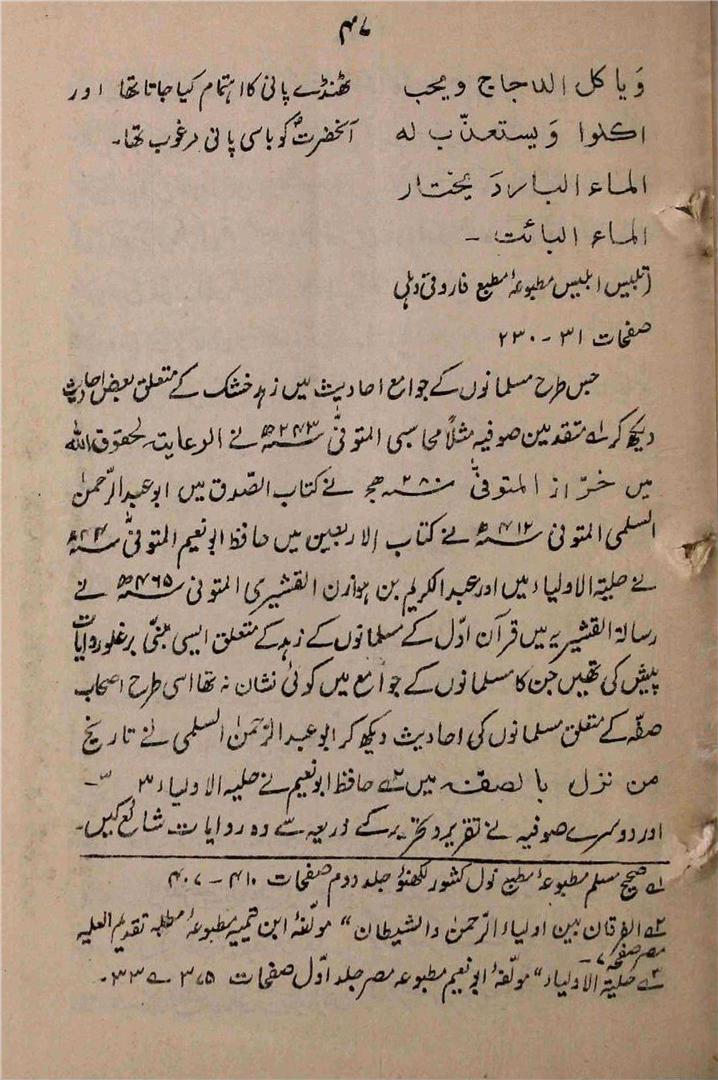 ۴۷
وَیا کل الدجاج ویحب
اکلوا وَیستعذّب له
الماء الباردَ یختار
الماء البائت -
(تلبیس ابلیس مطبوعۂ مطبع فاروقی دہلی
صفحات ۳۱ - ۲۳۰
ٹھنڈے پانی کا اہتمام کیا جاتا تھا اور
آنحضرتؐ کو باسی پانی مرغوب تھا۔
جس طرح مسلمانوں کے جوامع احادیث میں زہد خشک کے متعلق بعض احادیث
دیکھ کر لے متقدمین صوفیہ مثلاً محاسبی المتوفیٰ ۲۴۳ھ نے الرعایتہ لحقوق اللہ
میں خرّاز المتوفیٰ ۲۸۰ ھج نے کتاب الصّدق میں ابو عبد الرّحمٰن
السلمی المتوفی ۴۱۲ھ نے کتاب الاربعین میں حافظ ابو نعیم المتوفیٰ
نے حلیۃ الاولیاء میں اور عبد الکریم بن ہوازن القشیری المتوفی ۴۶۵ھ نے
رسالۃ القشیریہ میں قرآن اوّل کے مسلمانوں کے زہد کے متعلق ایسی مبنی بر غلو روایات
پیش کی تھیں جن کا مسلمانوں کے جوامع میں کوئی نشان نہ تھا اسی طرح اصحاب
صفّہ کے متعلق مسلمانوں کی احادیث دیکھ کر ابو عبد الرّحمٰن السلمی نے تاریخ
من نزل بالصفتہ میں ۲ے حافظ ابو نعیم نے حلیہ الاولیاء ۳ میں -
اور دوسرے صوفیہ نے تقریر و تحریر کے ذریعہ سے وہ روایات شائع کیں۔
۱ے صحیح مسلم مطبوعۂ مطبع نول کشور لکھنؤ جلد دوم صفحات ۴۱۰ - ۴۰۷
۲ے الفرقان بین اولیاء الرّحمٰن والشیطان" مولّفۂ ابن تیمیہ مطبوعۂ تقدیم العلیہ
مصر صفحہ ۷ -
۳ے حلیۃ الاولیاء" مولّفۂ ابو نعیم مطبوعہ مصر جلد اوّل صفحات ۳۷۵ ے ۳۳۔